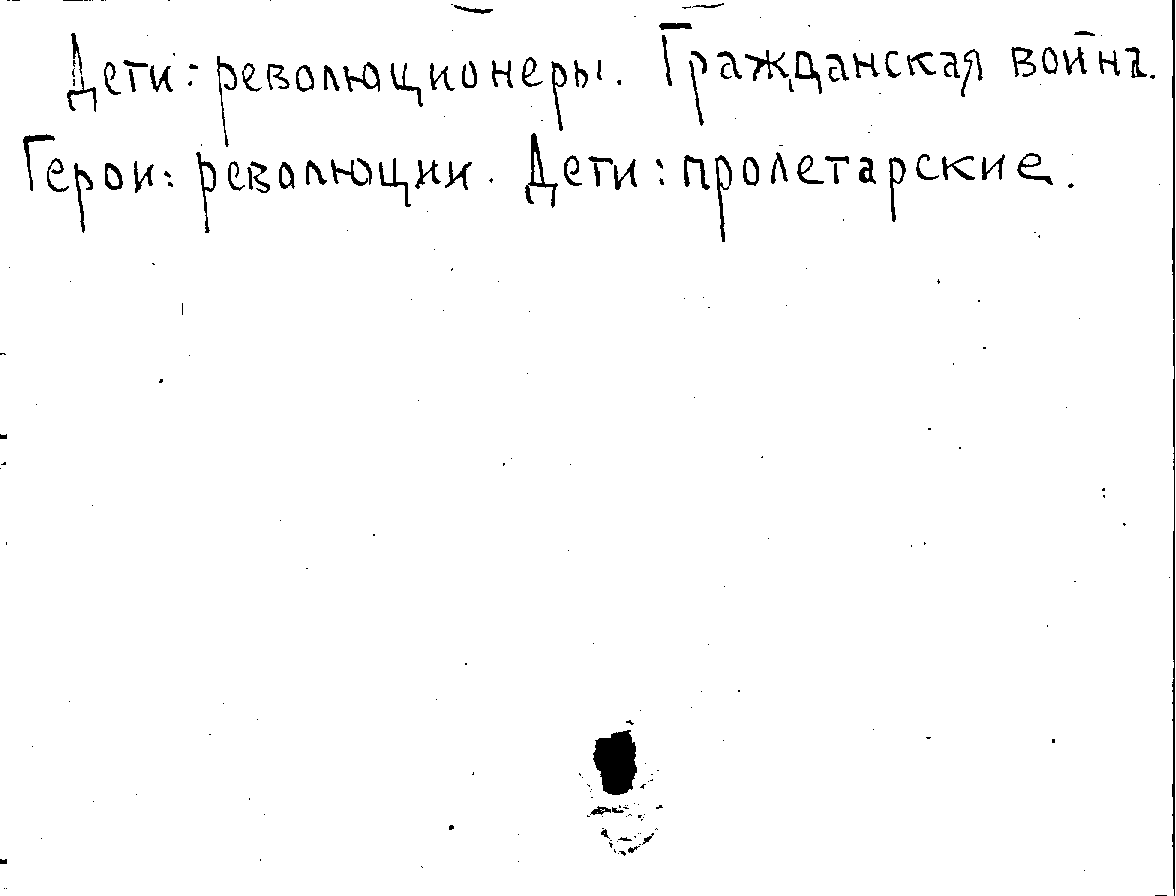 Дети: революционеры. Гражданская война.
Герои: революции. Дети: пролетарские.